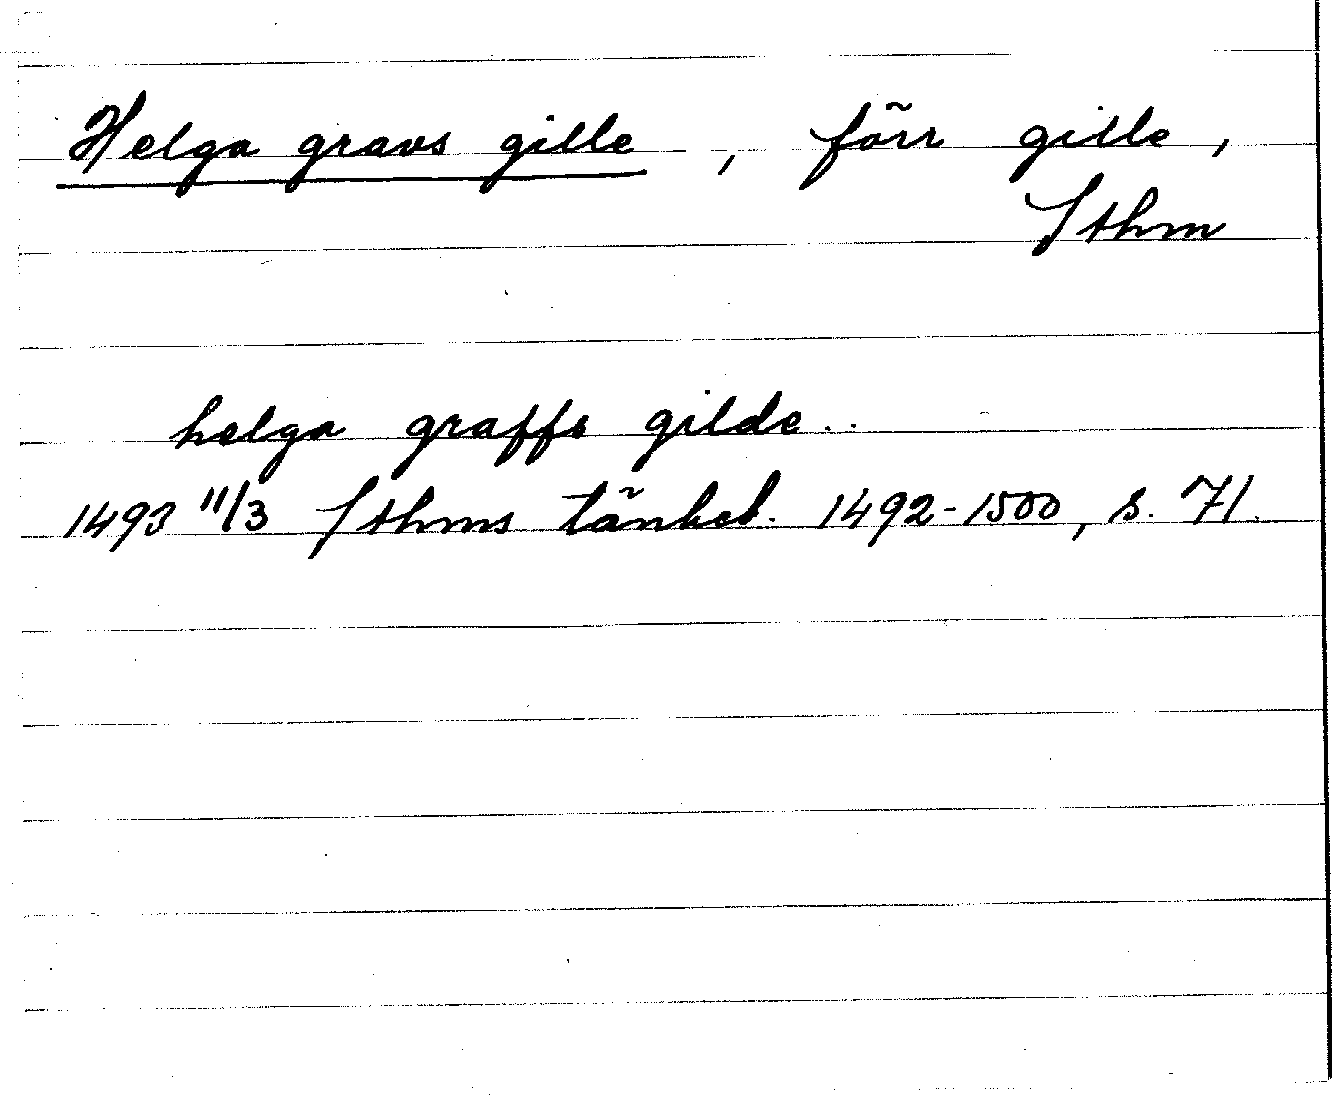 Helga gravs gille, förr gille,
Sthm
helga graffs gilde..
1493 11/3 Sthms tänkeb. 1492-1500, s. 71.